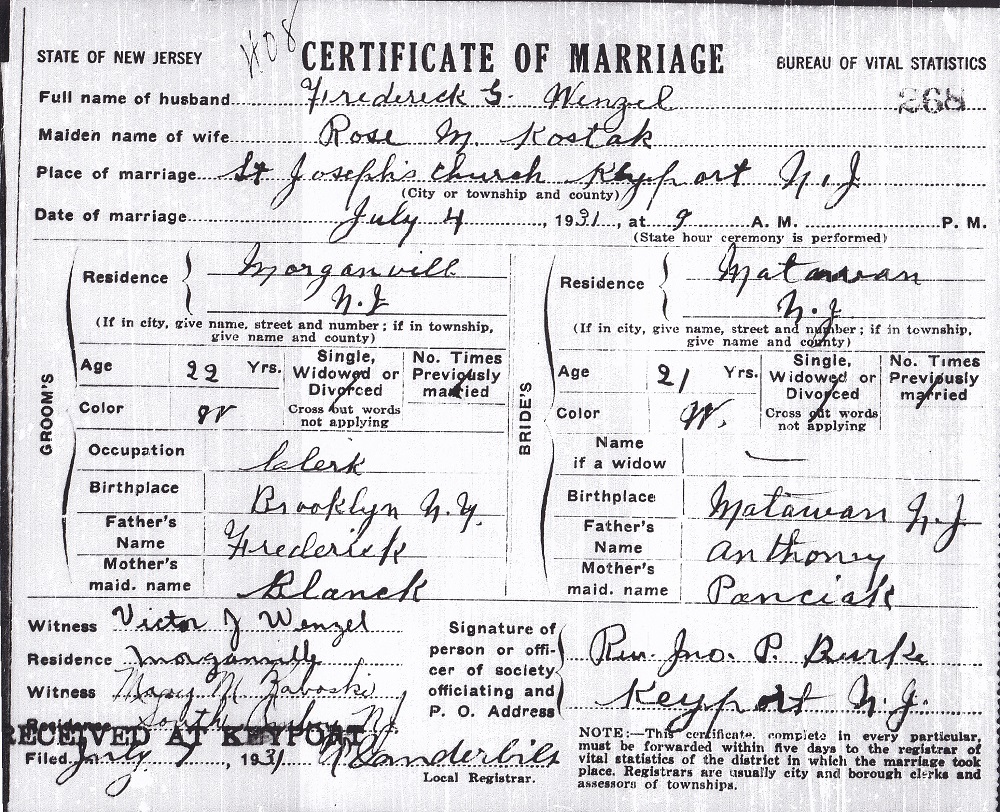 1408
STATE OF NEW JERSEY CERTIFICATE OF MARRIAGE BUREAU OF VITAL STATISTICS
268
Full name of husband Frederick G. Wenzel
Maiden name of wife Rose M. Kostak
Place of marriage St Joseph's church Keyport N.J
(City or township and county)
Date of marriage July 4, 1931, at 9 A. M. P. M.
(State hour ceremony is performed)
GROOM'S
Residence Morganvill
N.J
(If in city, give name, street and number; if in township,
give name and county)
Age 22 Yrs. Single, Widowed or Divorced No. Times Previously married
Color W Cross out words not applying
Occupation Clerk
Birthplace Brooklyn N.Y.
Father's Name Frederick
Mother's maid. name Blanck
BRIDE'S
Residence Matawan
N.J
(If in city, give name, street and number; if in township,
give name and county)
Age 21 Yrs. Single, Widowed or Divorced No. Times Previously married
Color W. Cross out words not applying
Name if a widow —
Birthplace Matawan N.J
Father's Name Anthony
Mother's maid. name Panciak
Witness Victor J Wenzel
Residence Morganville
Witness Mary M Zaboski
Residence South Amboy NJ
RECEIVED AT KEYPORT
Filed July 7, 1931 Vanderbilt
Local Registrar.
Signature of
person or offi-
cer of society
officiating and
P. O. Address
Rev. Jno. P. Burke
Keyport N.J.
NOTE:—This certificate, complete in every particular,
must be forwarded within five days to the registrar of
vital statistics of the district in which the marriage took
place. Registrars are usually city and borough clerks and
assessors of townships.